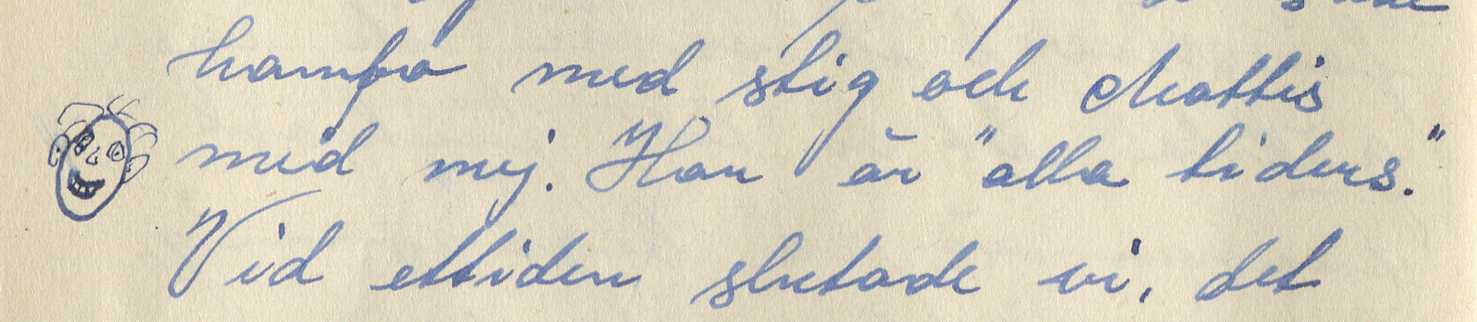 hampa med stig och Mattis
med mej. Han är "alla tiders."
Vid ettiden slutade vi, det